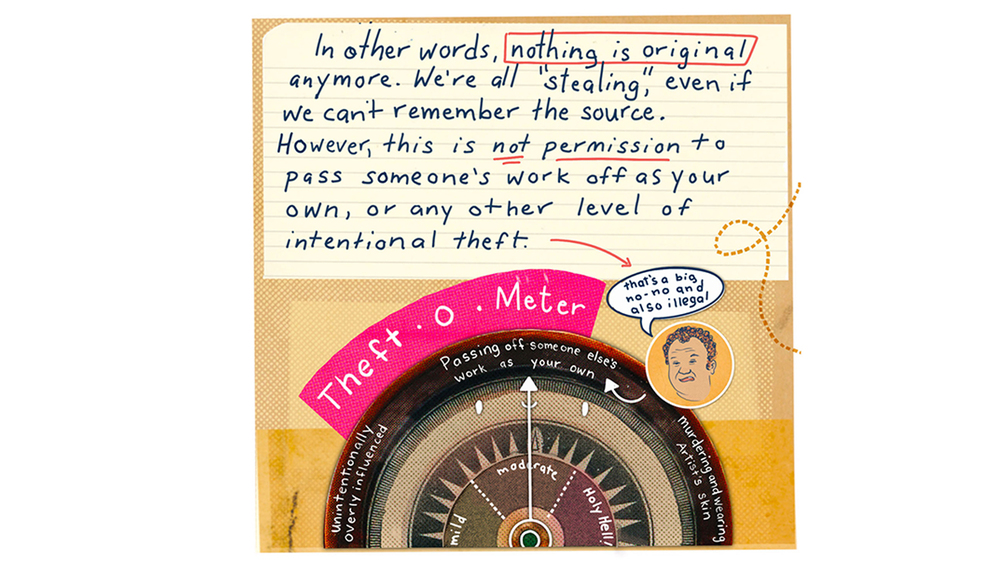 In other words, nothing is original
anymore. We're all "stealing," even if
we can't remember the source.
However, this is not permission to
pass someone's work off as your
own, or any other level of
intentional theft.
that's a big
no-no and
also illegal
Theft.O.Meter
Passing off someone else's
work as your own
Unintentionally
overly influenced
murdering and wearing
Artist's skin
mild
moderate
Holy Hell!